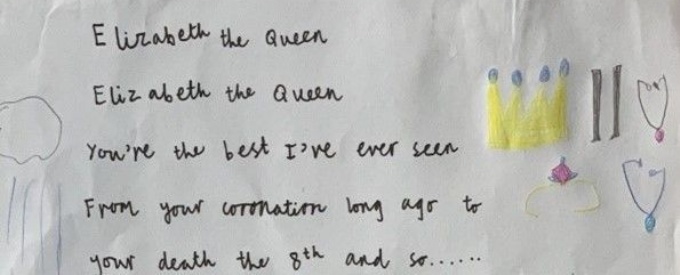 Elizabeth the Queen
Elizabeth the Queen
You're the best I've ever seen
From your coronation long ago to
your death the 8th and so......